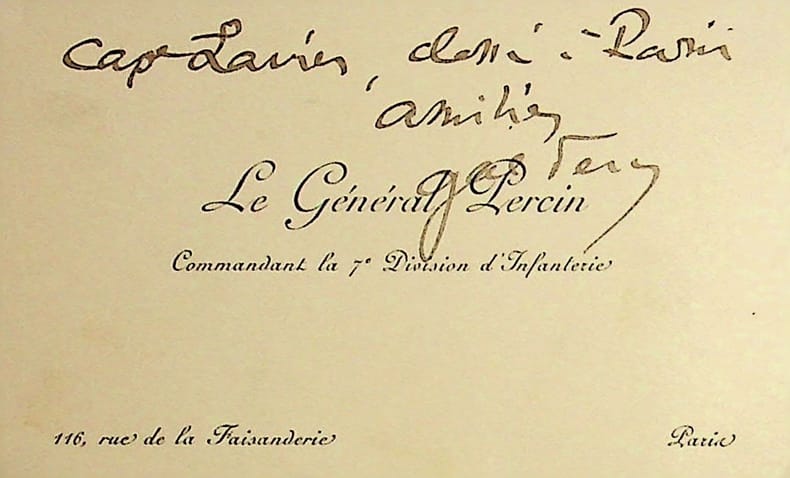 Capne Lavies, classé à Paris
amitiés
Gal Percin
Le Général Percin
Commandant la 7e Division d'Infanterie
116, rue de la Faisanderie
Paris